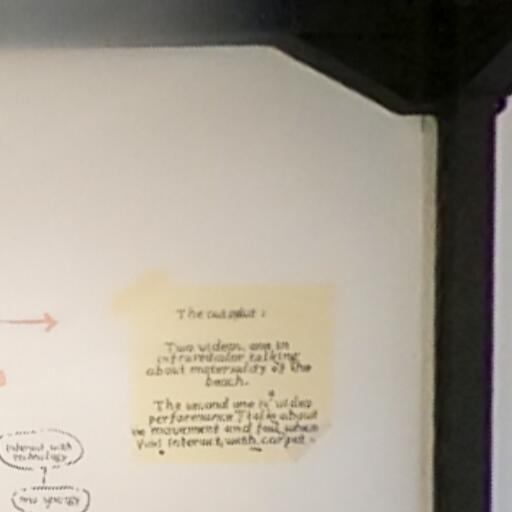 The output :
Two videos, one in
infraredcolor talking
about materiality of the
beach.
The second one is video
performance I talk about
movement and feel when
interact with carpet.
interact with
technology